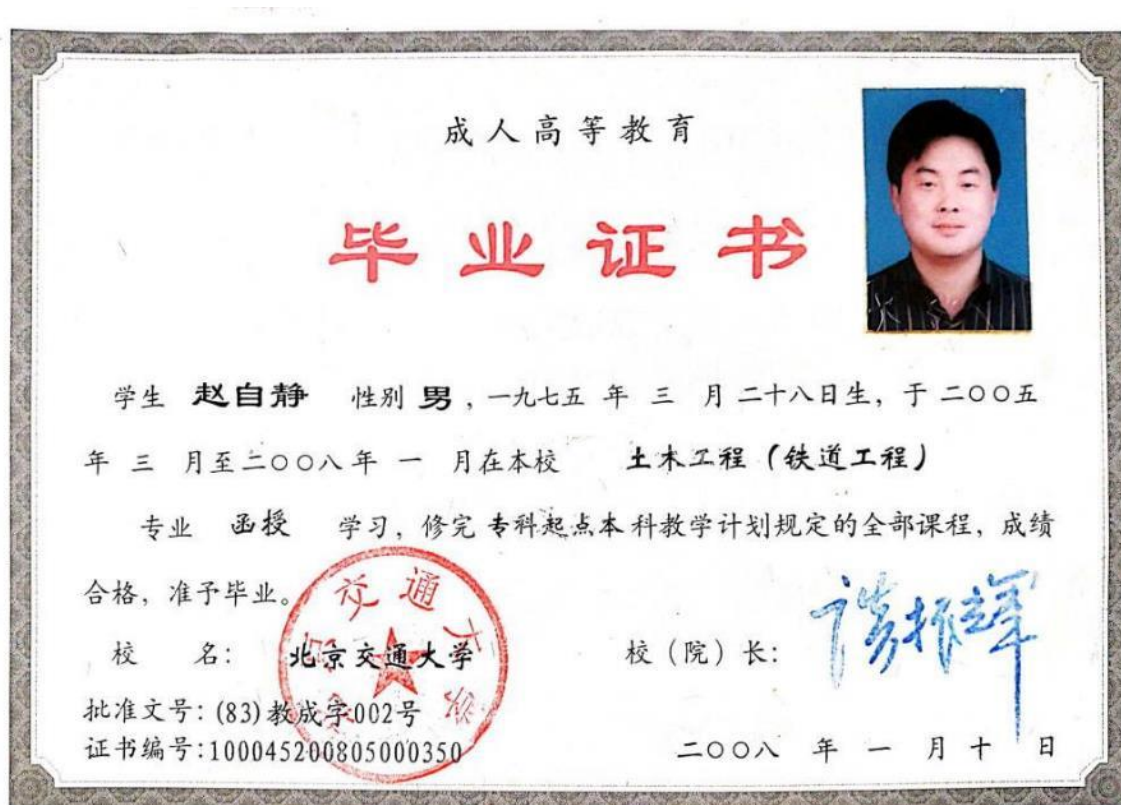 成人高等教育
毕业证书
学生 赵自静 性别 男，一九七五 年 三 月 二十八日生，于 二○○五
年 三 月至二○○八年 一 月在本校 土木工程（铁道工程）
专业 函授 学习，修完 专科起点本科教学计划规定的全部课程，成绩
合格，准予毕业。
校 名： 北京交通大学
校（院）长： 谈振辉
批准文号：(83)教成字002号
证书编号：100045200805000350
二○○八 年 一 月 十 日